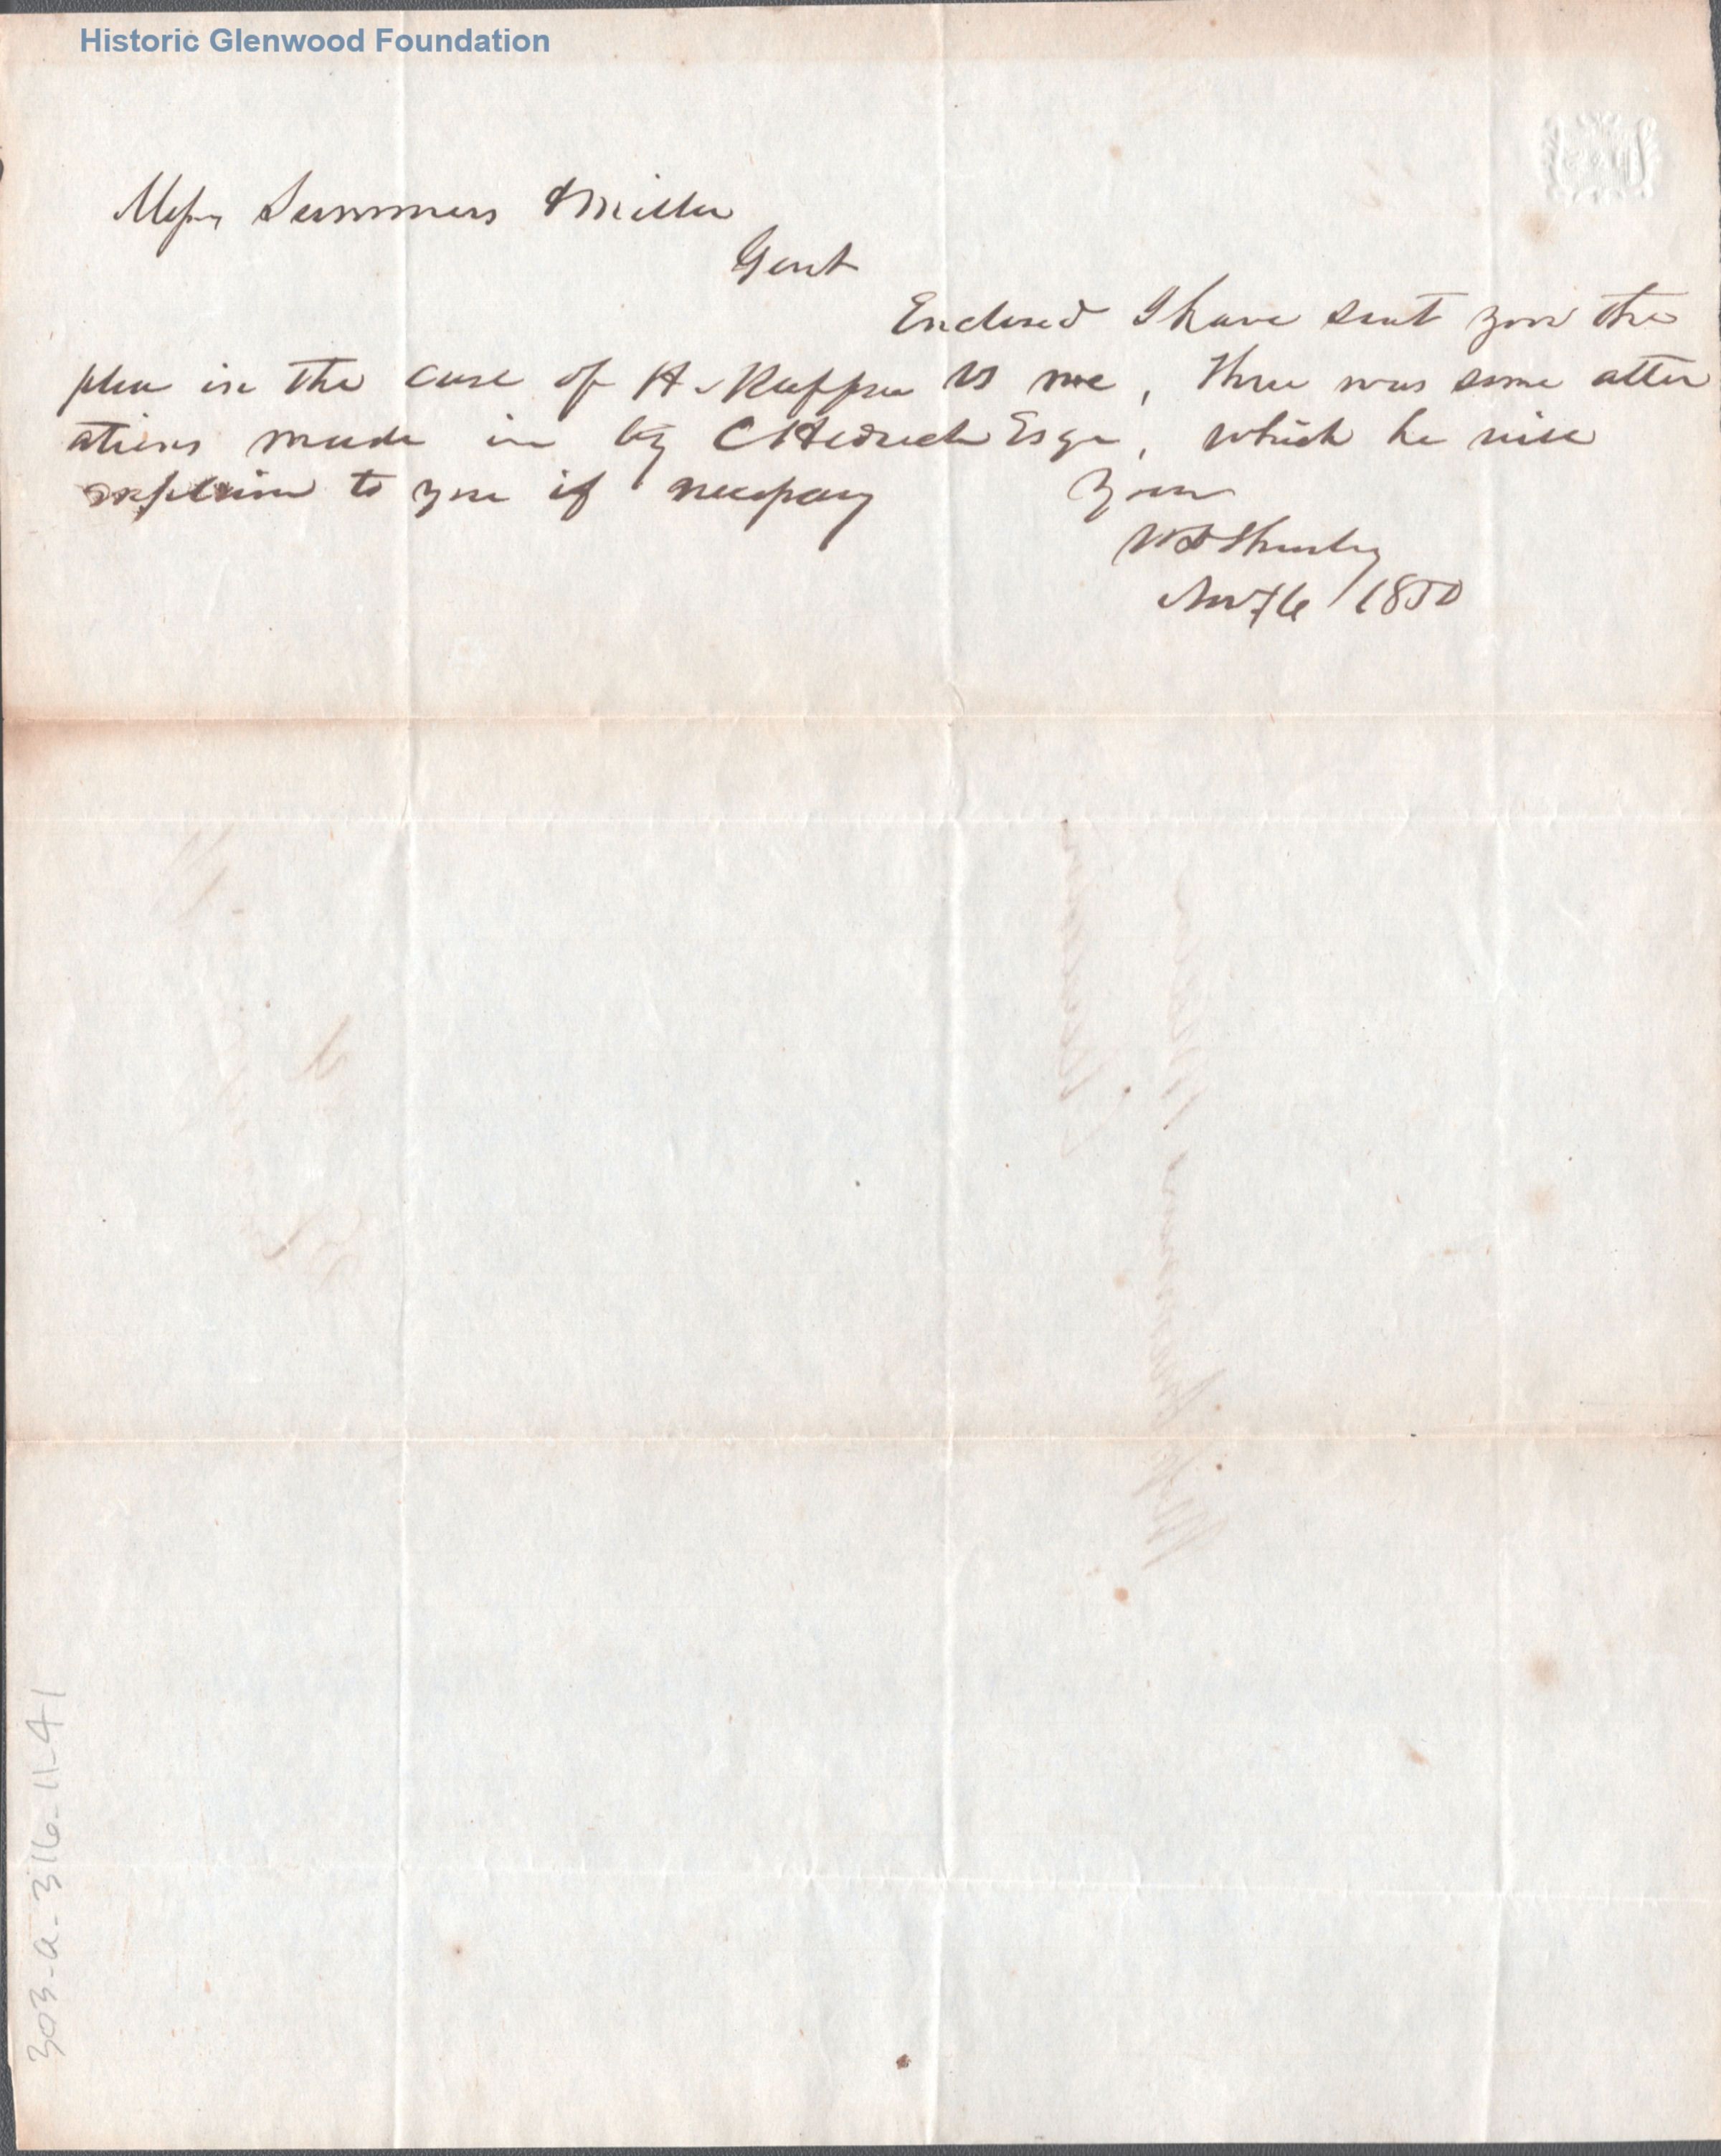 Historic Glenwood Foundation
Messrs Summers & Miller
Gent
Enclosed I have sent you the
plea in the case of H. Ruffner vs me, there was some alter
ations made in by C Hedrick Esqr, which he will
explain to you if necessary
Yours
Nov 16 / 1850
303-a-316-11-41